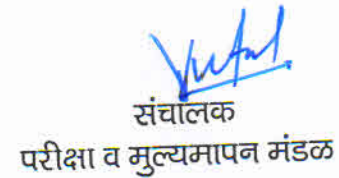 संचालक
परीक्षा व मुल्यमापन मंडळ